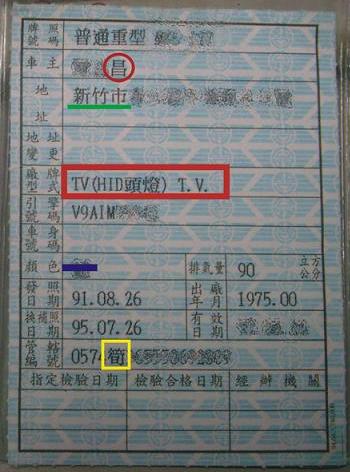 牌照號碼 普通重型
車主 昌
地址 新竹市
地址變更
廠牌型式 TV(HID頭燈) T.V.
引擎號碼 V9AIM
車身號碼
顏色 排氣量 90 立方公分
發照日期 91.08.26 出廠年月 1975.00
換補照日期 95.07.26 有效日期
管轄編號 0574 筍
指定檢驗日期 檢驗合格日期 經辦機關